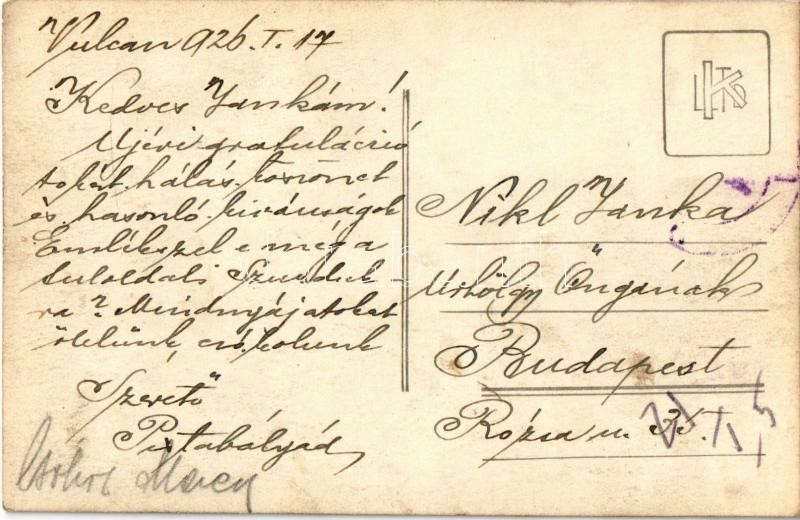 Vulcan 926. I. 17
Kedves Jankám!
Ujévi gratuláció
tokat hálás köszönet
és hasonló kivánságok
Emlékszel e még a
tuloldali
ra? Mindnyájatokat
ölelünk, csókolunk
Szerető
Pistabátyád
Nikl Janka
Urhölgy Őngának
Budapest
Rózsa u. 35. I.